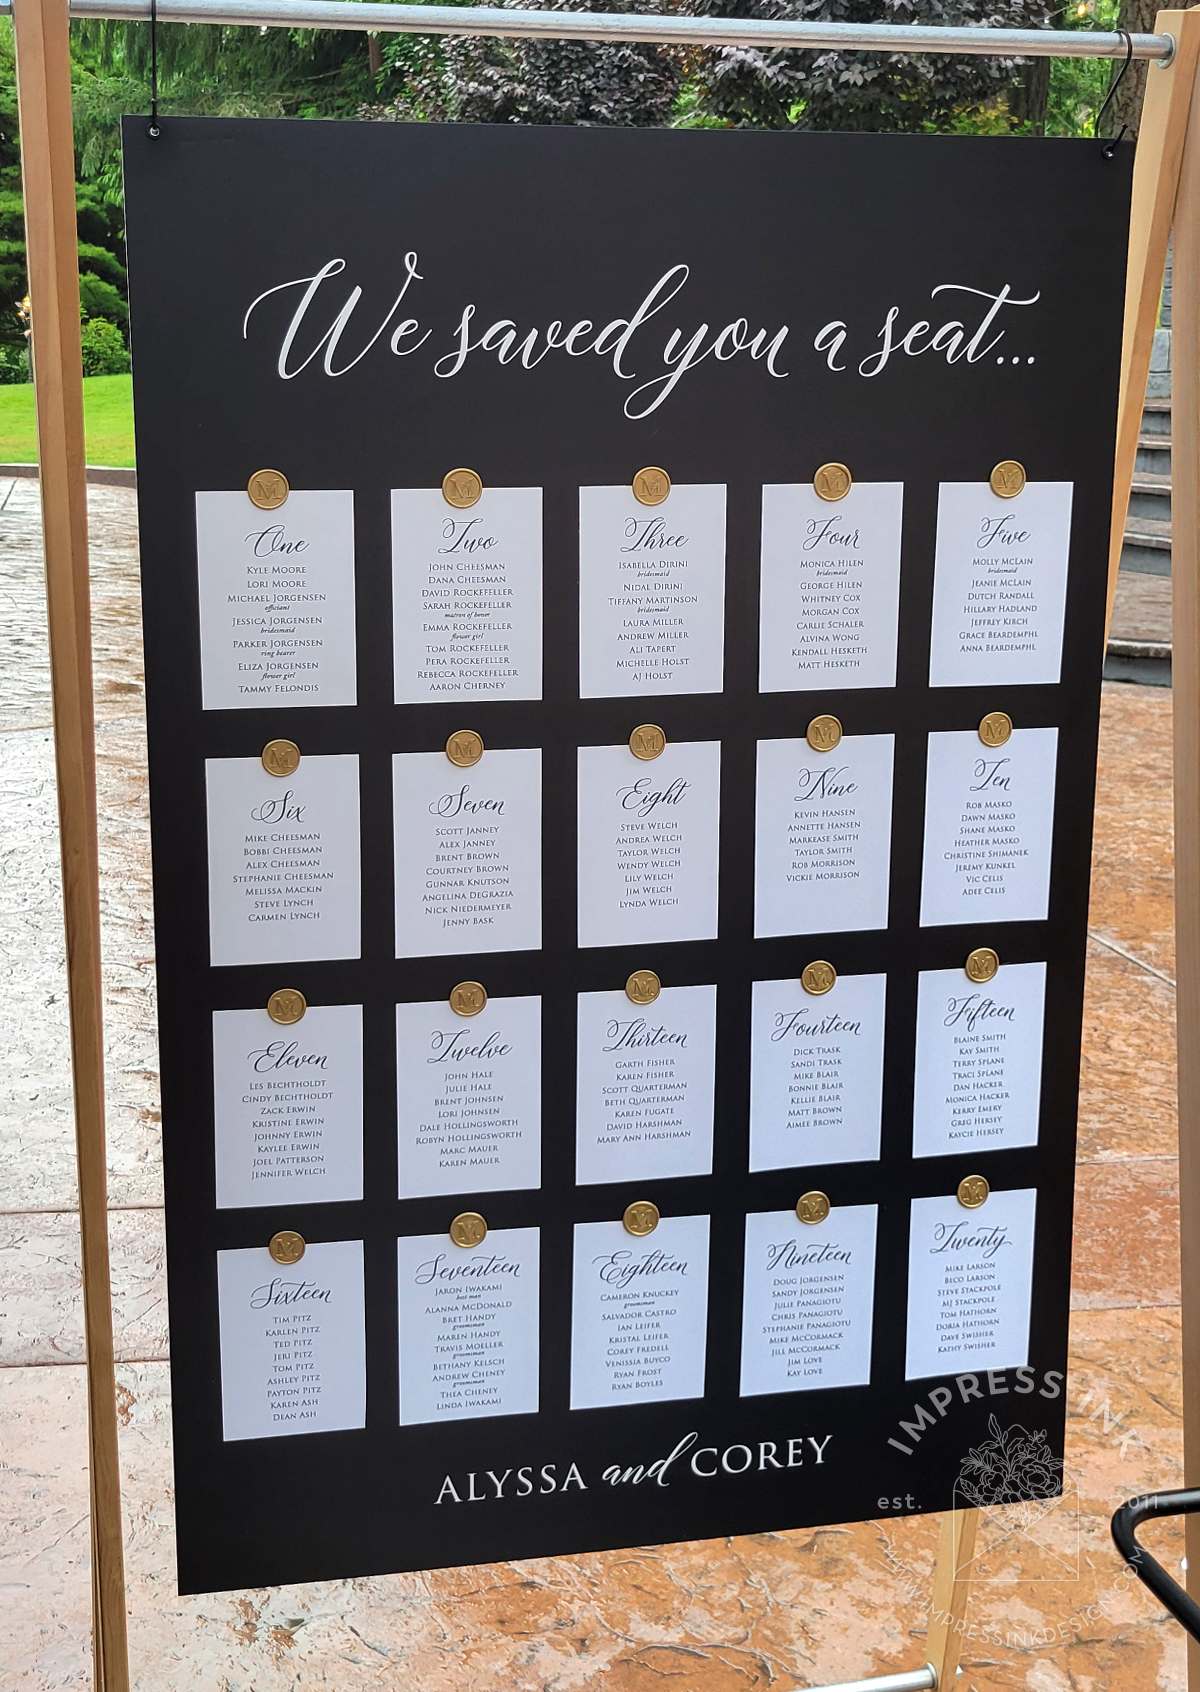 We saved you a seat...
M
One
KYLE MOORE
LORI MOORE
MICHAEL JORGENSEN
officiant
JESSICA JORGENSEN
bridesmaid
PARKER JORGENSEN
ring bearer
ELIZA JORGENSEN
flower girl
TAMMY FELONDIS
M
Two
JOHN CHEESMAN
DANA CHEESMAN
DAVID ROCKEFELLER
SARAH ROCKEFELLER
matron of honor
EMMA ROCKEFELLER
flower girl
TOM ROCKEFELLER
PERA ROCKEFELLER
REBECCA ROCKEFELLER
AARON CHERNEY
M
Three
ISABELLA DIRINI
bridesmaid
NIDAL DIRINI
TIFFANY MARTINSON
bridesmaid
LAURA MILLER
ANDREW MILLER
ALI TAPERT
MICHELLE HOLST
AJ HOLST
M
Four
MONICA HILEN
bridesmaid
GEORGE HILEN
WHITNEY COX
MORGAN COX
CARLIE SCHALER
ALVINA WONG
KENDALL HESKETH
MATT HESKETH
M
Five
MOLLY MCLAIN
bridesmaid
JEANIE MCLAIN
DUTCH RANDALL
HILLARY HADLAND
JEFFREY KIRCH
GRACE BEARDEMPHL
ANNA BEARDEMPHL
M
Six
MIKE CHEESMAN
BOBBI CHEESMAN
ALEX CHEESMAN
STEPHANIE CHEESMAN
MELISSA MACKIN
STEVE LYNCH
CARMEN LYNCH
M
Seven
SCOTT JANNEY
ALEX JANNEY
BRENT BROWN
COURTNEY BROWN
GUNNAR KNUTSON
ANGELINA DEGRAZIA
NICK NIEDERMEYER
JENNY BASK
M
Eight
STEVE WELCH
ANDREA WELCH
TAYLOR WELCH
WENDY WELCH
LILY WELCH
JIM WELCH
LYNDA WELCH
M
Nine
KEVIN HANSEN
ANNETTE HANSEN
MARKEASE SMITH
TAYLOR SMITH
ROB MORRISON
VICKIE MORRISON
M
Ten
ROB MASKO
DAWN MASKO
SHANE MASKO
HEATHER MASKO
CHRISTINE SHIMANEK
JEREMY KUNKEL
VIC CELIS
ADEE CELIS
M
Eleven
LES BECHTHOLDT
CINDY BECHTHOLDT
ZACK ERWIN
KRISTINE ERWIN
JOHNNY ERWIN
KAYLEE ERWIN
JOEL PATTERSON
JENNIFER WELCH
M
Twelve
JOHN HALE
JULIE HALE
BRENT JOHNSEN
LORI JOHNSEN
DALE HOLLINGSWORTH
ROBYN HOLLINGSWORTH
MARC MAUER
KAREN MAUER
M
Thirteen
GARTH FISHER
KAREN FISHER
SCOTT QUARTERMAN
BETH QUARTERMAN
KAREN FUGATE
DAVID HARSHMAN
MARY ANN HARSHMAN
M
Fourteen
DICK TRASK
SANDI TRASK
MIKE BLAIR
BONNIE BLAIR
KELLIE BLAIR
MATT BROWN
AIMEE BROWN
M
Fifteen
BLAINE SMITH
KAY SMITH
TERRY SPLANE
TRACI SPLANE
DAN HACKER
MONICA HACKER
KERRY EMERY
GREG HERSEY
KAYCIE HERSEY
M
Sixteen
TIM PITZ
KARLEN PITZ
TED PITZ
JERI PITZ
TOM PITZ
ASHLEY PITZ
PAYTON PITZ
KAREN ASH
DEAN ASH
M
Seventeen
JARON IWAKAMI
best man
ALANNA MCDONALD
BRET HANDY
groomsman
MAREN HANDY
TRAVIS MOELLER
groomsman
BETHANY KELSCH
ANDREW CHENEY
groomsman
THEA CHENEY
LINDA IWAKAMI
M
Eighteen
CAMERON KNUCKEY
groomsman
SALVADOR CASTRO
IAN LEIFER
KRISTAL LEIFER
COREY FREDELL
VENISSIA BUYCO
RYAN FROST
RYAN BOYLES
M
Nineteen
DOUG JORGENSEN
SANDY JORGENSEN
JULIE PANAGIOTU
CHRIS PANAGIOTU
STEPHANIE PANAGIOTU
MIKE MCCORMACK
JILL MCCORMACK
JIM LOVE
KAY LOVE
M
Twenty
MIKE LARSON
BECO LARSON
STEVE STACKPOLE
MJ STACKPOLE
TOM HATHORN
DORIA HATHORN
DAVE SWISHER
KATHY SWISHER
ALYSSA and COREY
IMPRESS INK
est. 2011
WWW.IMPRESSINKDESIGN.COM